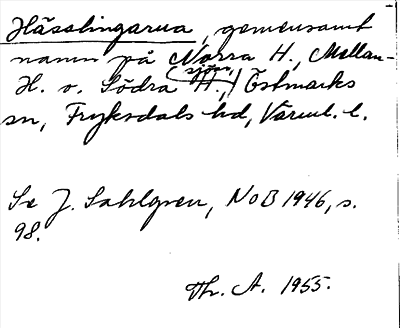 Hässlingarna, gemensamt
namn på Norra H., Mellan-
H. o. Södra H., sjöar, Östmarks
sn, Fryksdals hd, Värml. l.
Se J. Sahlgren, NoB 1946, s.
98.
Th. A. 1955.